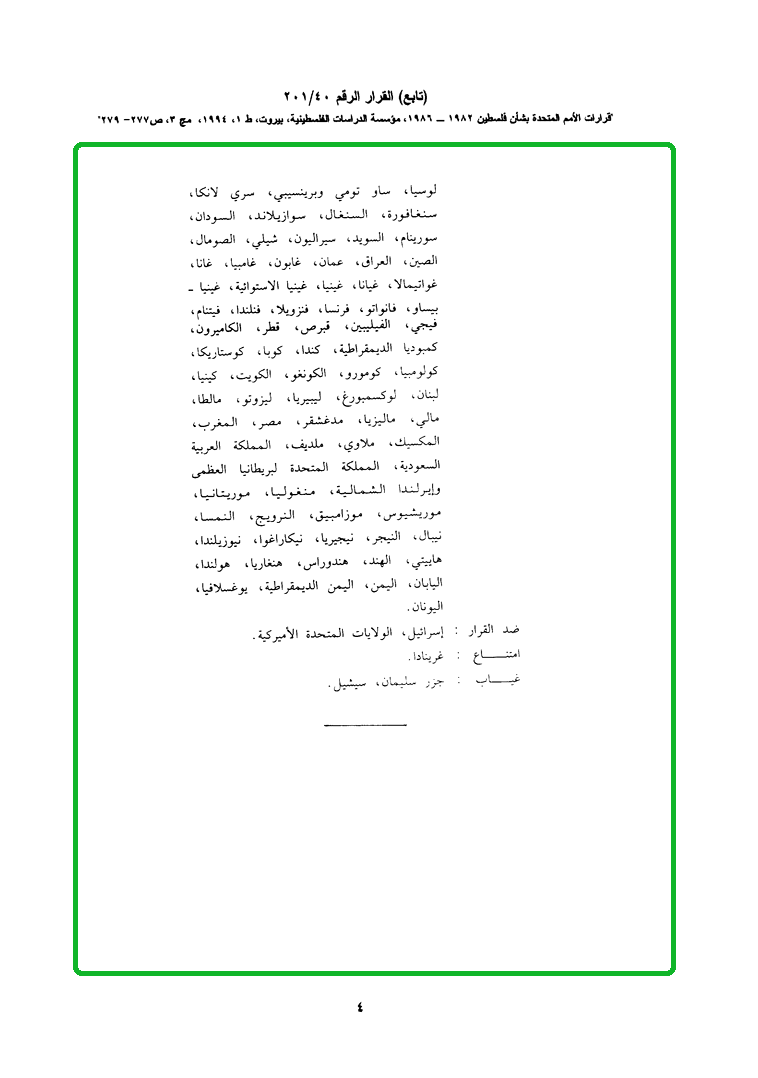 (تابع) القرار الرقم ٢٠١/٤٠
"قرارات الأمم المتحدة بشأن فلسطين ١٩٨٢ ــ ١٩٨٦، مؤسسة الدراسات الفلسطينية، بيروت، ط ١، ١٩٩٤، مج ٣، ص٢٧٧- ٢٧٩"
لوسيا، ساو تومي وبرينسيبي، سري لانكا،
سنغافورة، السنغال، سوازيلاند، السودان،
سورينام، السويد، سيراليون، شيلي، الصومال،
الصين، العراق، عمان، غابون، غامبيا، غانا،
غواتيمالا، غيانا، غينيا، غينيا الاستوائية، غينيا ـ
بيساو، فانواتو، فرنسا، فنزويلا، فنلندا، فيتنام،
فيجي، الفيليبين، قبرص، قطر، الكاميرون،
كمبوديا الديمقراطية، كندا، كوبا، كوستاريكا،
كولومبيا، كومورو، الكونغو، الكويت، كينيا،
لبنان، لوكسمبورغ، ليبيريا، ليزوتو، مالطا،
مالي، ماليزيا، مدغشقر، مصر، المغرب،
المكسيك، ملاوي، ملديف، المملكة العربية
السعودية، المملكة المتحدة لبريطانيا العظمى
وإيرلندا الشمالية، منغوليا، موريتانيا،
موريشيوس، موزامبيق، النرويج، النمسا،
نيبال، النيجر، نيجيريا، نيكاراغوا، نيوزيلندا،
هاييتي، الهند، هندوراس، هنغاريا، هولندا،
اليابان، اليمن، اليمن الديمقراطية، يوغسلافيا،
اليونان.
ضد القرار : إسرائيل، الولايات المتحدة الأميركية.
امتنـــاع : غرينادا.
غيـــاب : جزر سليمان، سيشيل.
٤